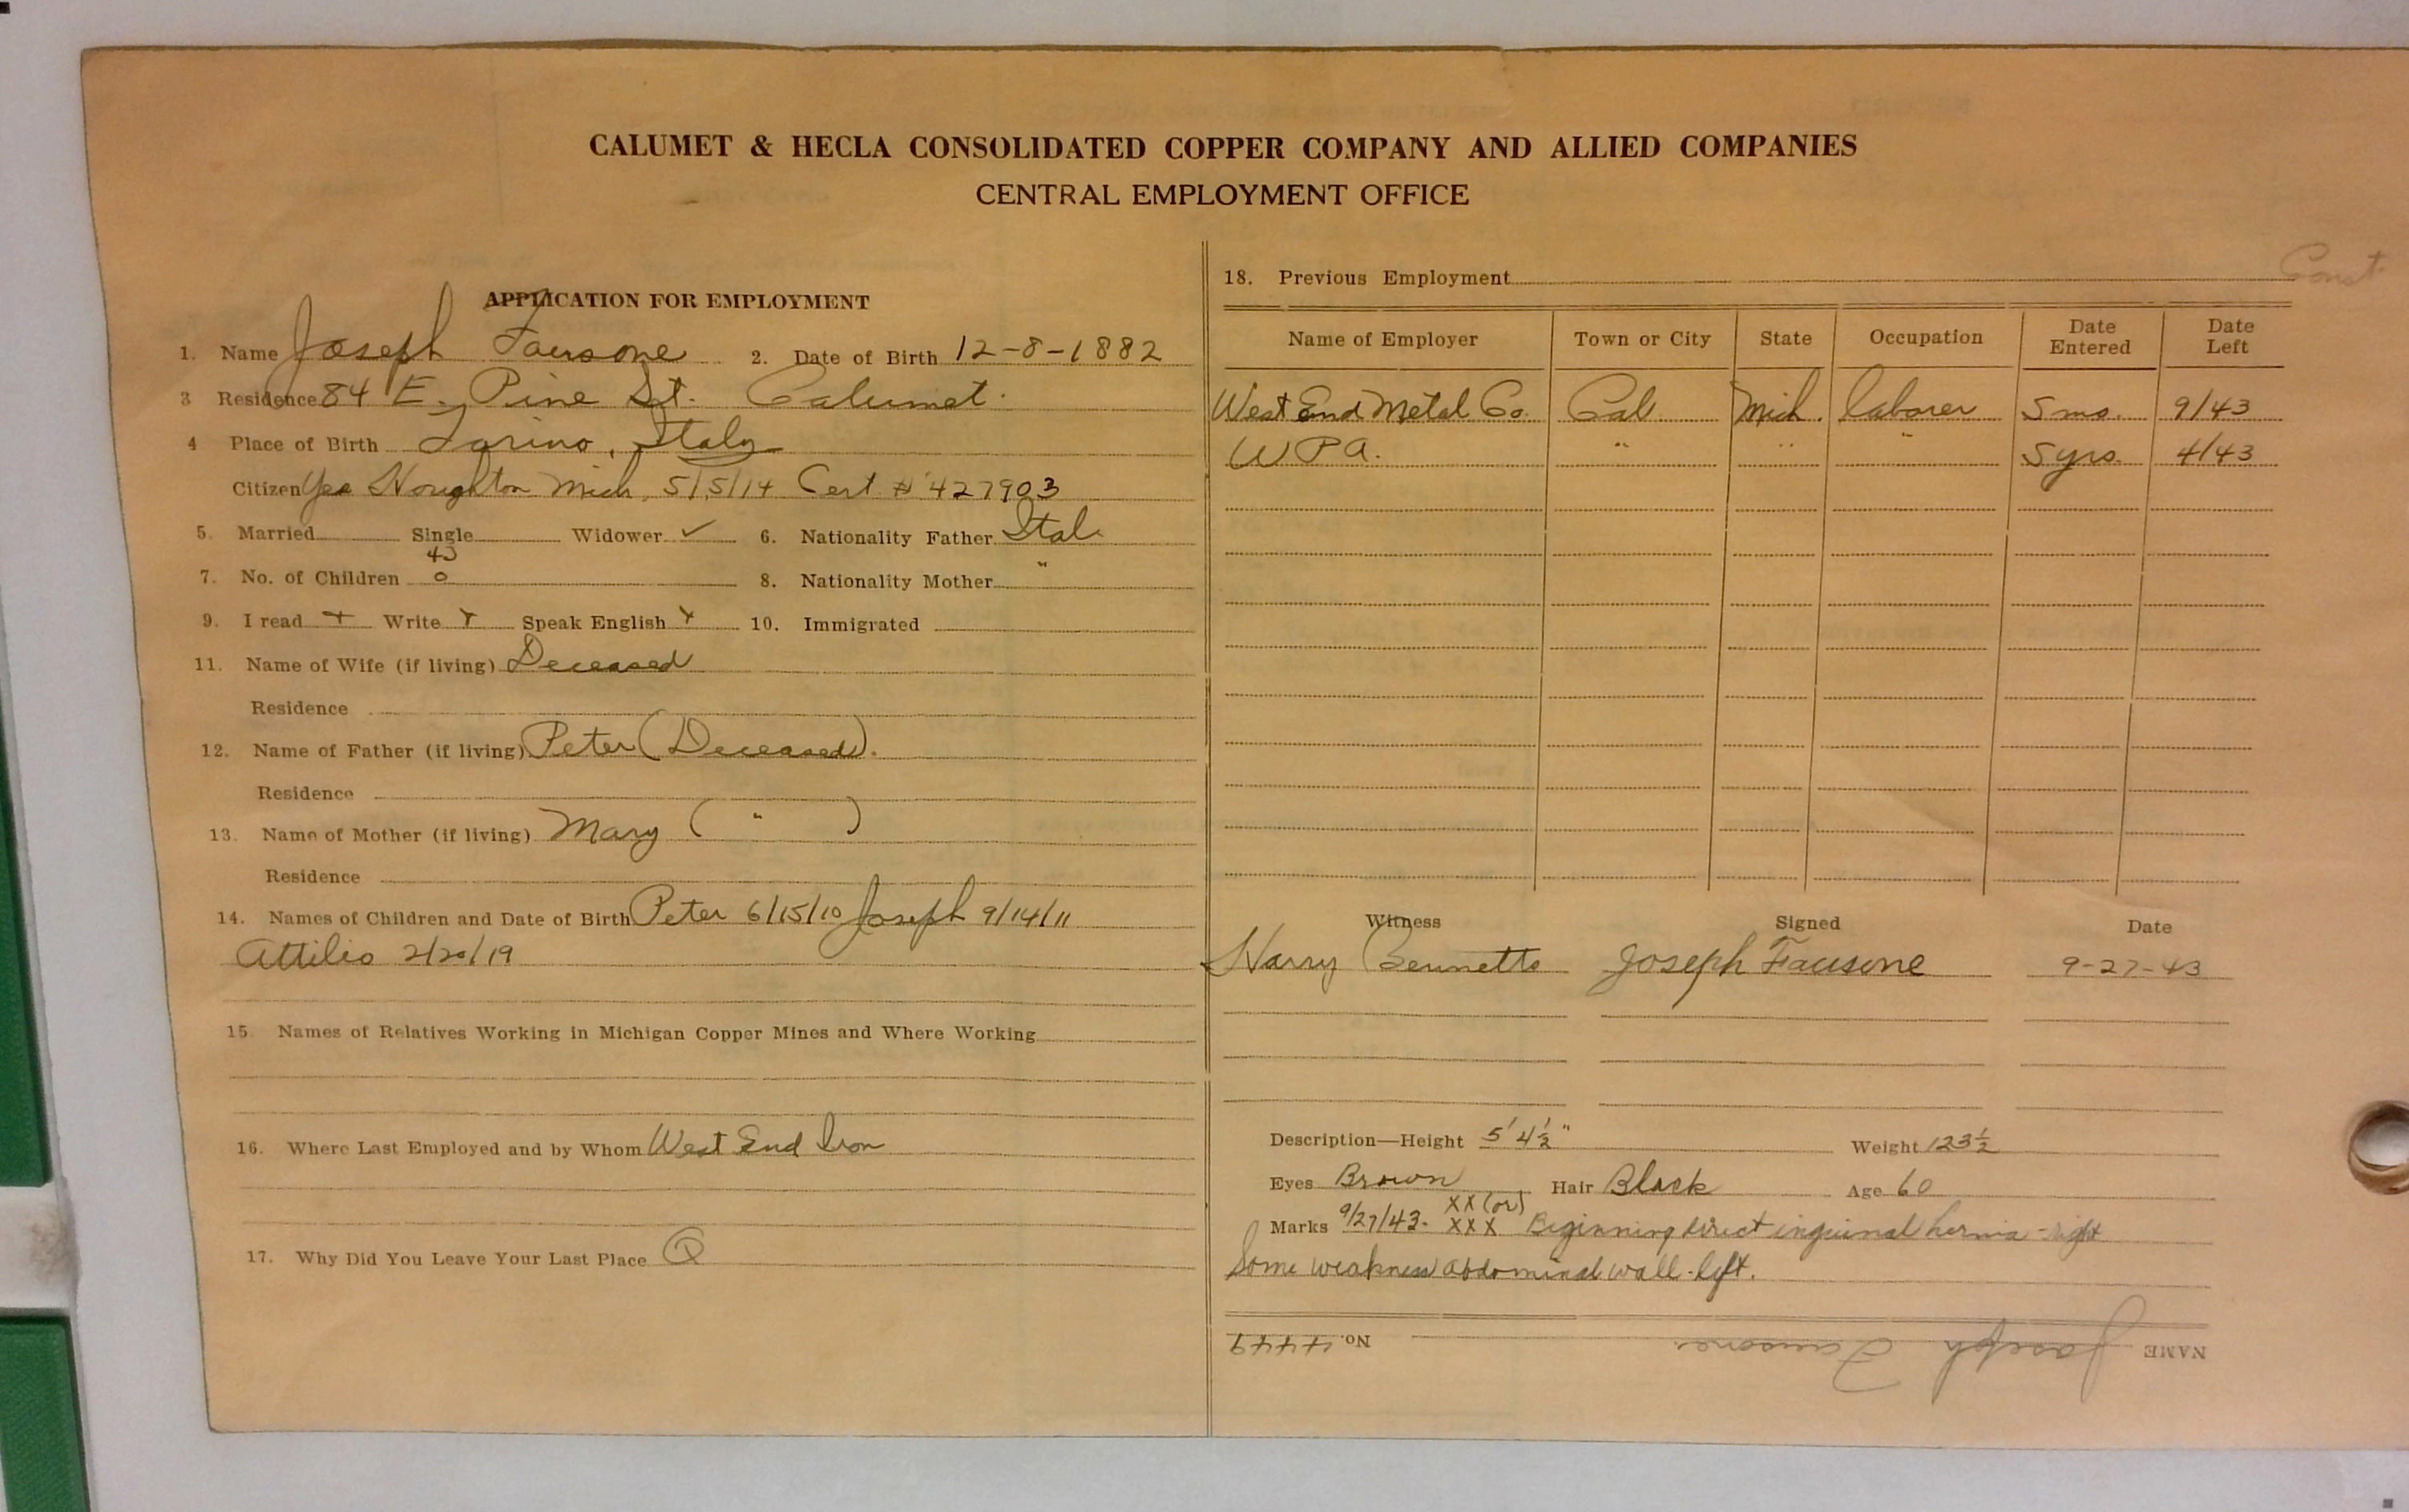 CALUMET & HECLA CONSOLIDATED COPPER COMPANY AND ALLIED COMPANIES
CENTRAL EMPLOYMENT OFFICE
APPLICATION FOR EMPLOYMENT
1. Name Joseph Fausone 2. Date of Birth 12-8-1882
3 Residence 84 E. Pine St. Calumet.
4 Place of Birth Torino, Italy
Citizen Yes Houghton Mich. 5/5/14 Cert # 427903
5. Married Single Widower ✓ 6. Nationality Father Ital.
43
7. No. of Children 0 8. Nationality Mother "
9. I read + Write + Speak English + 10. Immigrated
11. Name of Wife (if living) Deceased
Residence
12. Name of Father (if living) Peter (Deceased).
Residence
13. Name of Mother (if living) Mary ( " )
Residence
14. Names of Children and Date of Birth Peter 6/15/10 Joseph 9/14/11
Attilio 2/20/19
15. Names of Relatives Working in Michigan Copper Mines and Where Working
16. Where Last Employed and by Whom West End Iron
17. Why Did You Leave Your Last Place Q
18. Previous Employment Const.
Name of Employer Town or City State Occupation Date Entered Date Left
West End Metal Co. Cal Mich. laborer 5 mo. 9/43
W P A. " " " 5 yrs. 4/43
Witness Signed Date
Harry Bennetts Joseph Fausone 9-27-43
Description—Height 5' 4½" Weight 123½
Eyes Brown Hair Black Age 60
XX (or)
Marks 9/27/43. XXX Beginning direct inguinal hernia - right
Some weakness abdominal wall - left.
NAME Joseph Fausone No. 4449